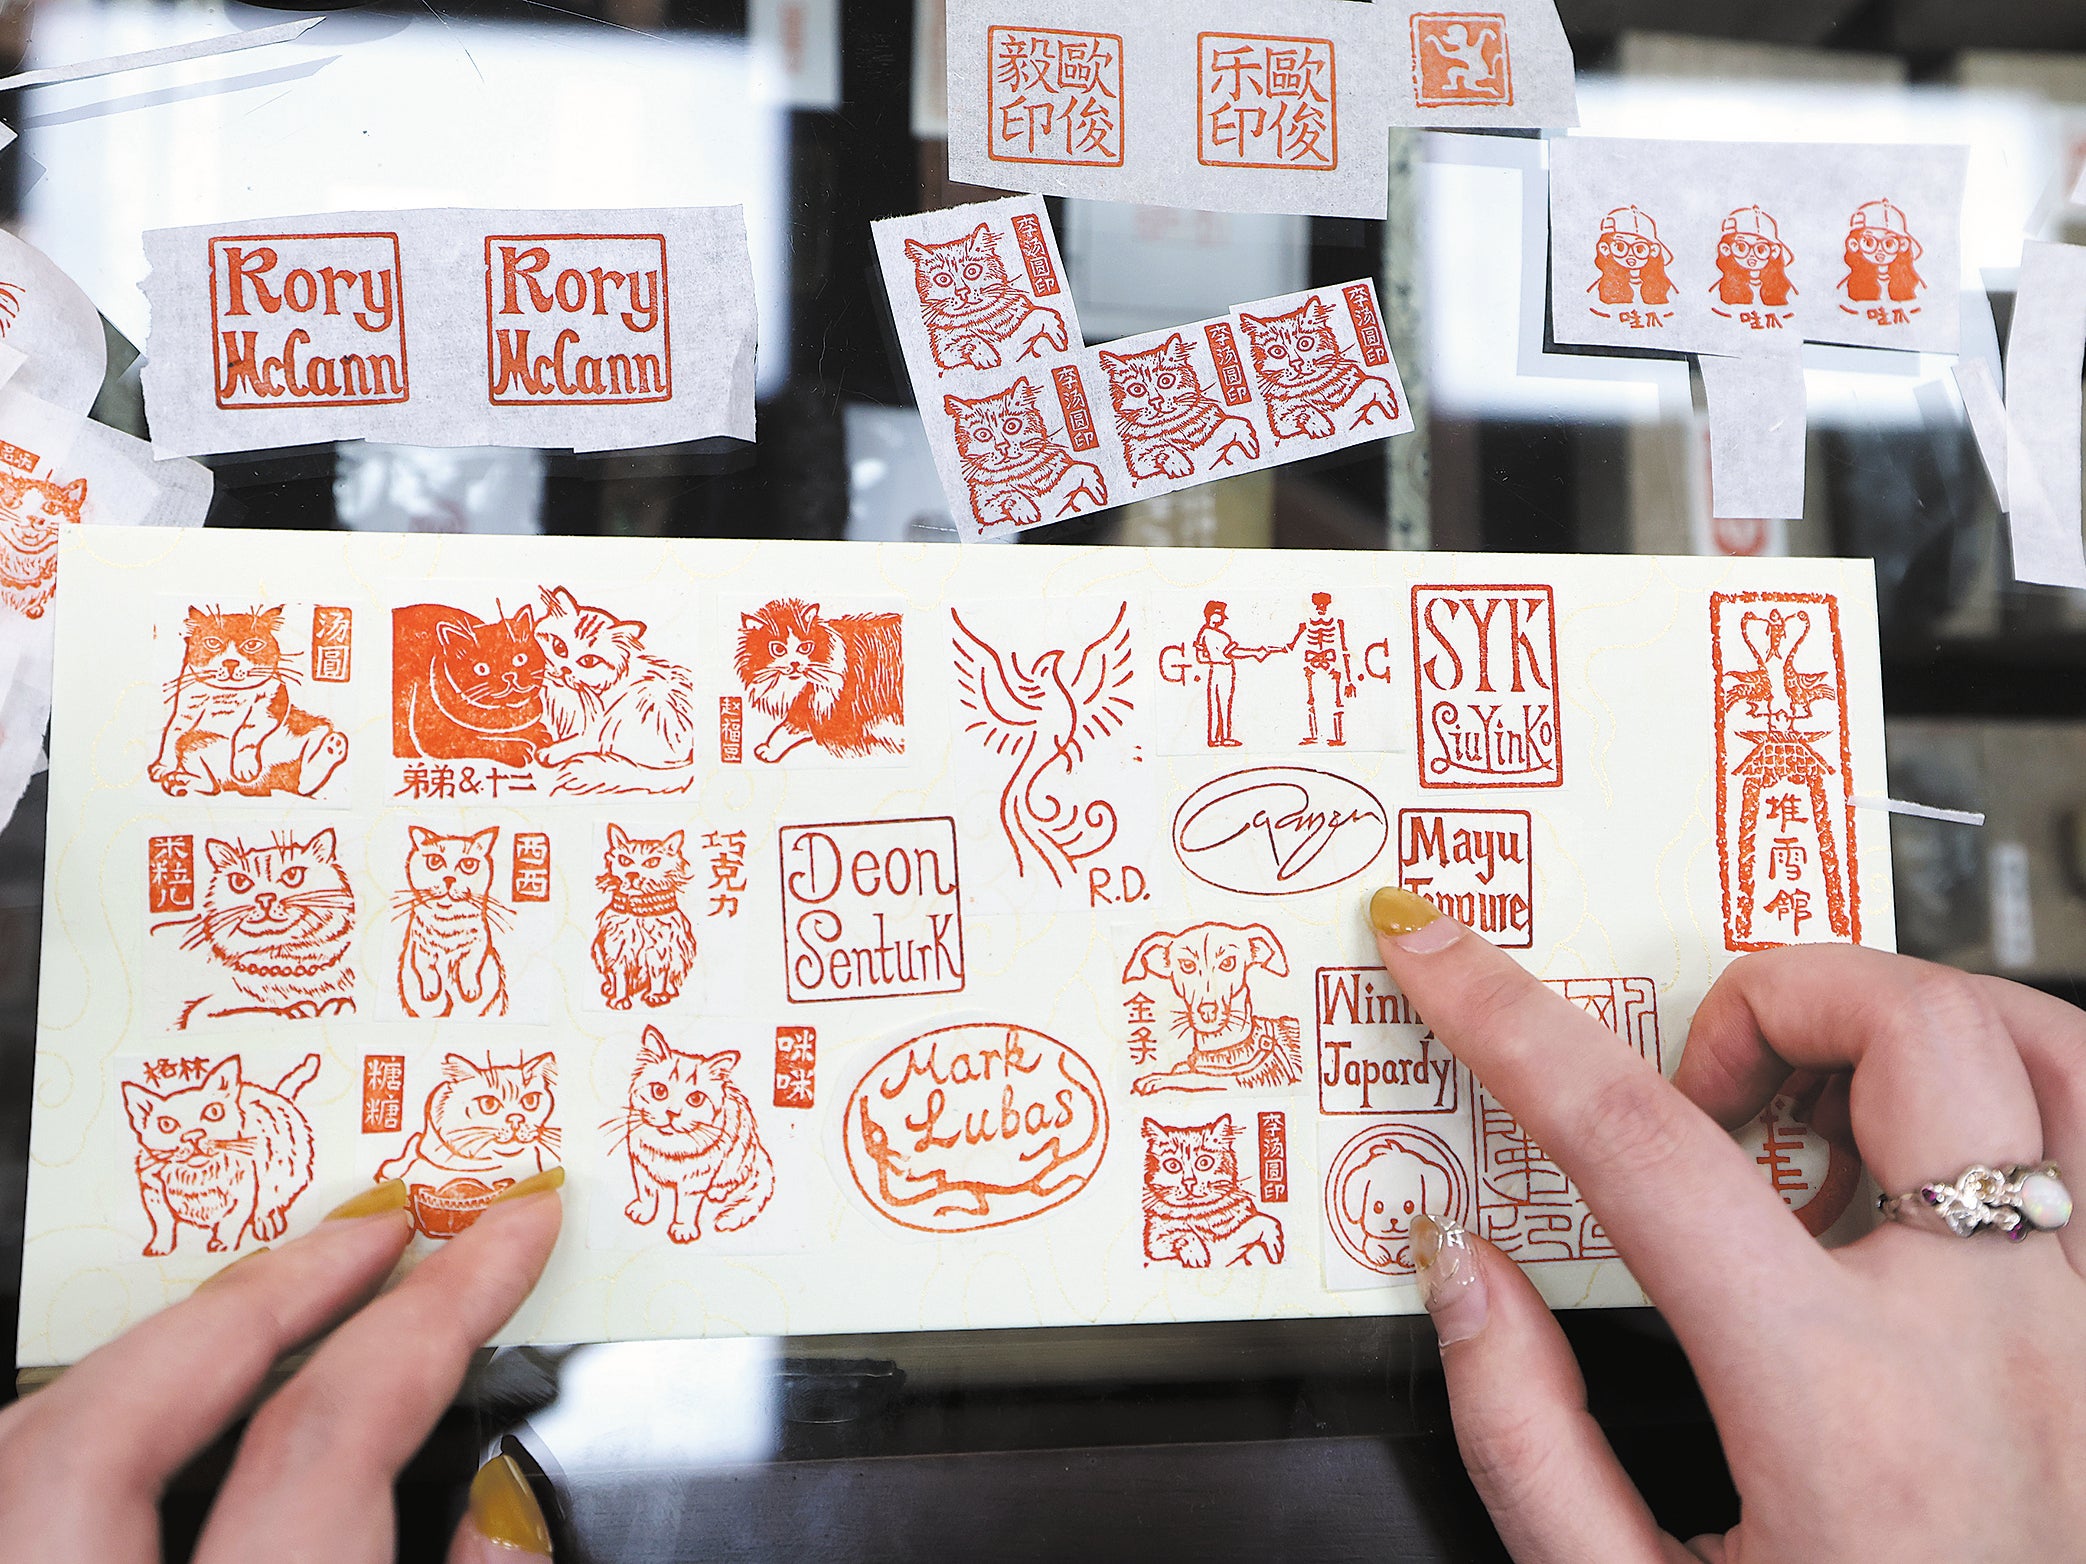 毅歐
印俊
乐歐
印俊
Rory
McCann
Rory
McCann
李汤圆印
李汤圆印
李汤圆印
李汤圆印
哇爪
哇爪
哇爪
汤圓
弟弟&十二
赵福豆
R.D.
G.
.C
SYK
LiuYinKo
堆雪館
米粒儿
西西
巧克力
Deon
Senturk
Mayu
金条
Japardy
格林
糖糖
咪咪
Mark
Lubas
李汤圆印